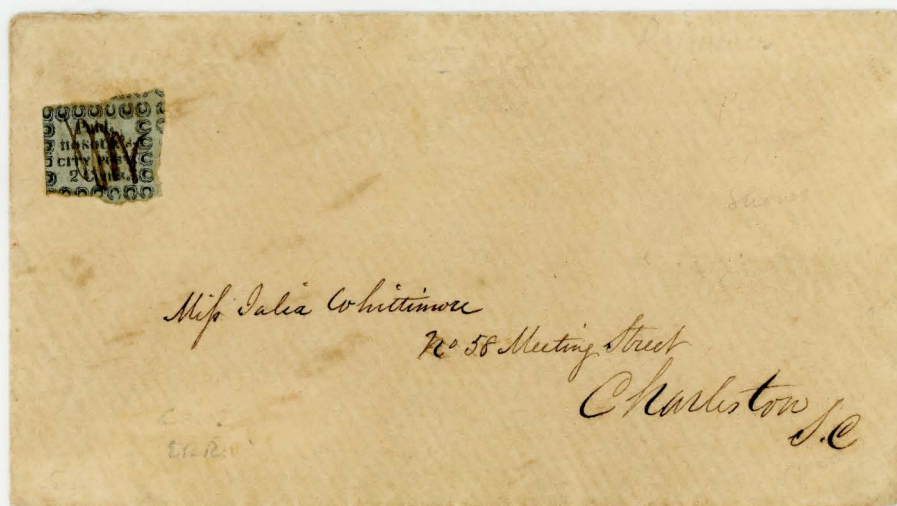 Paid.
HONOUR'S
CITY POST
2 Cents.
Miss Julia Whittimore
No 58 Meeting Street
Charleston
S.C